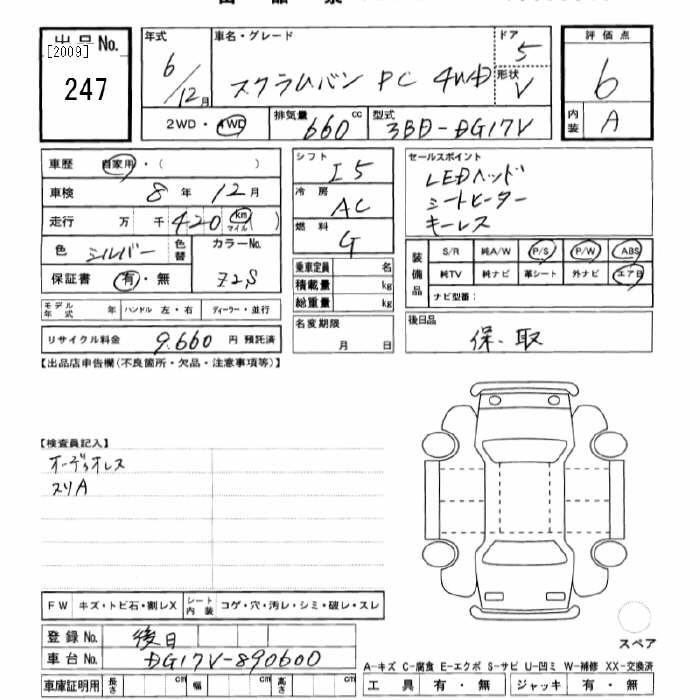 出品票
出品No.
[2009]
247
年式
6/12月
車名・グレード
スクラムバン PC 4WD
ドア
5
形状
V
2WD・4WD
排気量
660
cc
型式
3BD-DG17V
評価点
6
内装
A
車歴
自家用・( )
車検
8年12月
走行
万 千 420 km マイル ( )
色
シルバー
色替
カラーNo.
Z2S
保証書
有・無
モデル年式
年
ハンドル
左・右
ディーラー・並行
リサイクル料金
9,660
円 預託済
シフト
I5
冷房
AC
燃料
G
乗車定員
名
積載量
kg
総重量
kg
名変期限
月 日
セールスポイント
LEDヘッド
シートヒーター
キーレス
装備品
S/R 純A/W P/S P/W ABS
純TV 純ナビ 革シート 外ナビ エアB
ナビ型番:
後日品
保・取
【出品店申告欄(不良箇所・欠品・注意事項等)】
【検査員記入】
オーディオレス
スリA
FW キズ・トビ石・割レX
シート内装 コゲ・穴・汚レ・シミ・破レ・スレ
登録No.
後日
車台No.
DG17V-890600
車庫証明用
長さ
cm
幅
cm
高さ
cm
スペア
A-キズ C-腐食 E-エクボ S-サビ U-凹ミ W-補修 XX-交換済
工具 有・無
ジャッキ 有・無